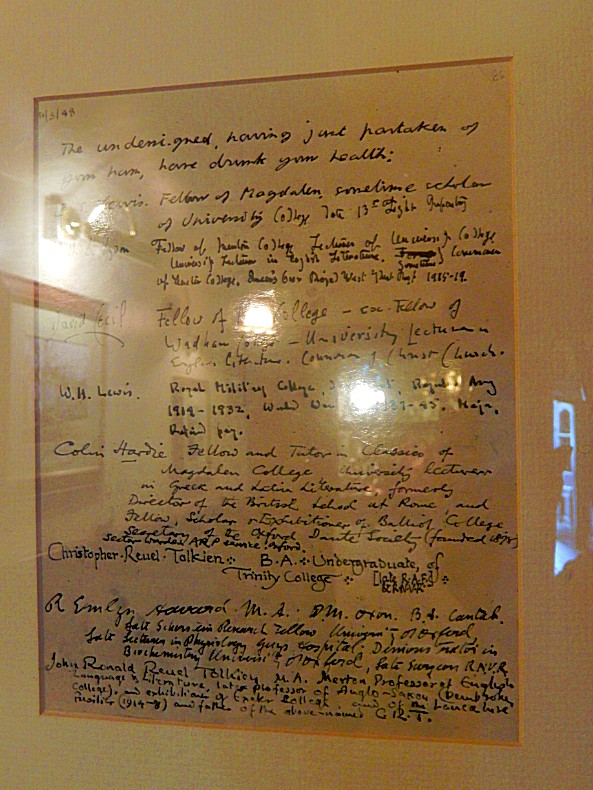 11/3/48
The undersigned, having just partaken of
your ham, have drunk your health:
Lewis. Fellow of Magdalen, sometime scholar
of University College late 13th Light Infantry
Fellow of Merton College Lecturer of University College
University Lecturer in English Literature. Commoner
of Exeter College, Queen's Own Royal West Kent Regt 1915-19.
David Cecil Fellow of College – ex-Fellow of
Wadham – University Lecturer in
English Literature. Commoner of Christ Church.
W.H. Lewis. Royal Military College, Army
1914–1932, World War –45. Major,
Retired pay.
Colin Hardie Fellow and Tutor in Classics of
Magdalen College University lecturer
in Greek and Latin Literature, formerly
Director of the British School at Rome, and
Fellow, Scholar & Exhibitioner of Balliol College
Secretary of the Oxford Dante Society (founded
ARP service Oxford.
Christopher Reuel Tolkien B.A. Undergraduate, of
Trinity College
R Emlyn Havard. M.A. D.M. Oxon. B.A. Cantab.
late Research Fellow University of Oxford,
late Lecturer in Physiology Guys Hospital. Demonstrator in
Biochemistry University of Oxford, late Surgeon R.N.V.R.
John Ronald Reuel Tolkien, M.A. Merton Professor of English
Language & Literature, late professor of Anglo-Saxon (Pembroke
College), and exhibitioner of Exeter College, and of the Lancashire
Fusiliers (1914-8) and father of the above-named C.R.T.